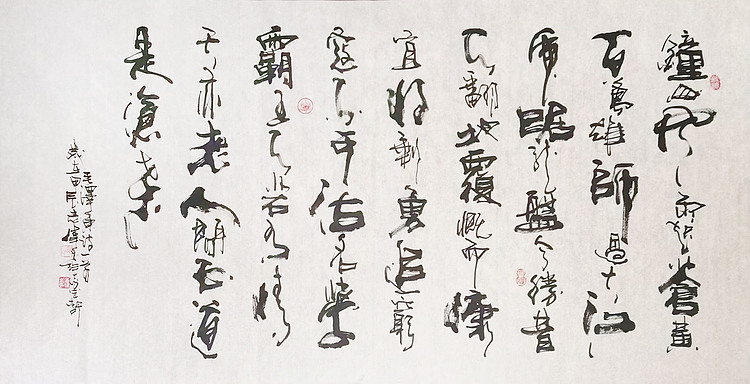 鐘山風雨起蒼黃
百萬雄師過大江
虎踞龍盤今勝昔
天翻地覆慨而慷
宜將剩勇追窮
寇不可沽名學
霸王天若有情
天亦老人間正道
是滄桑
毛澤東詩一首